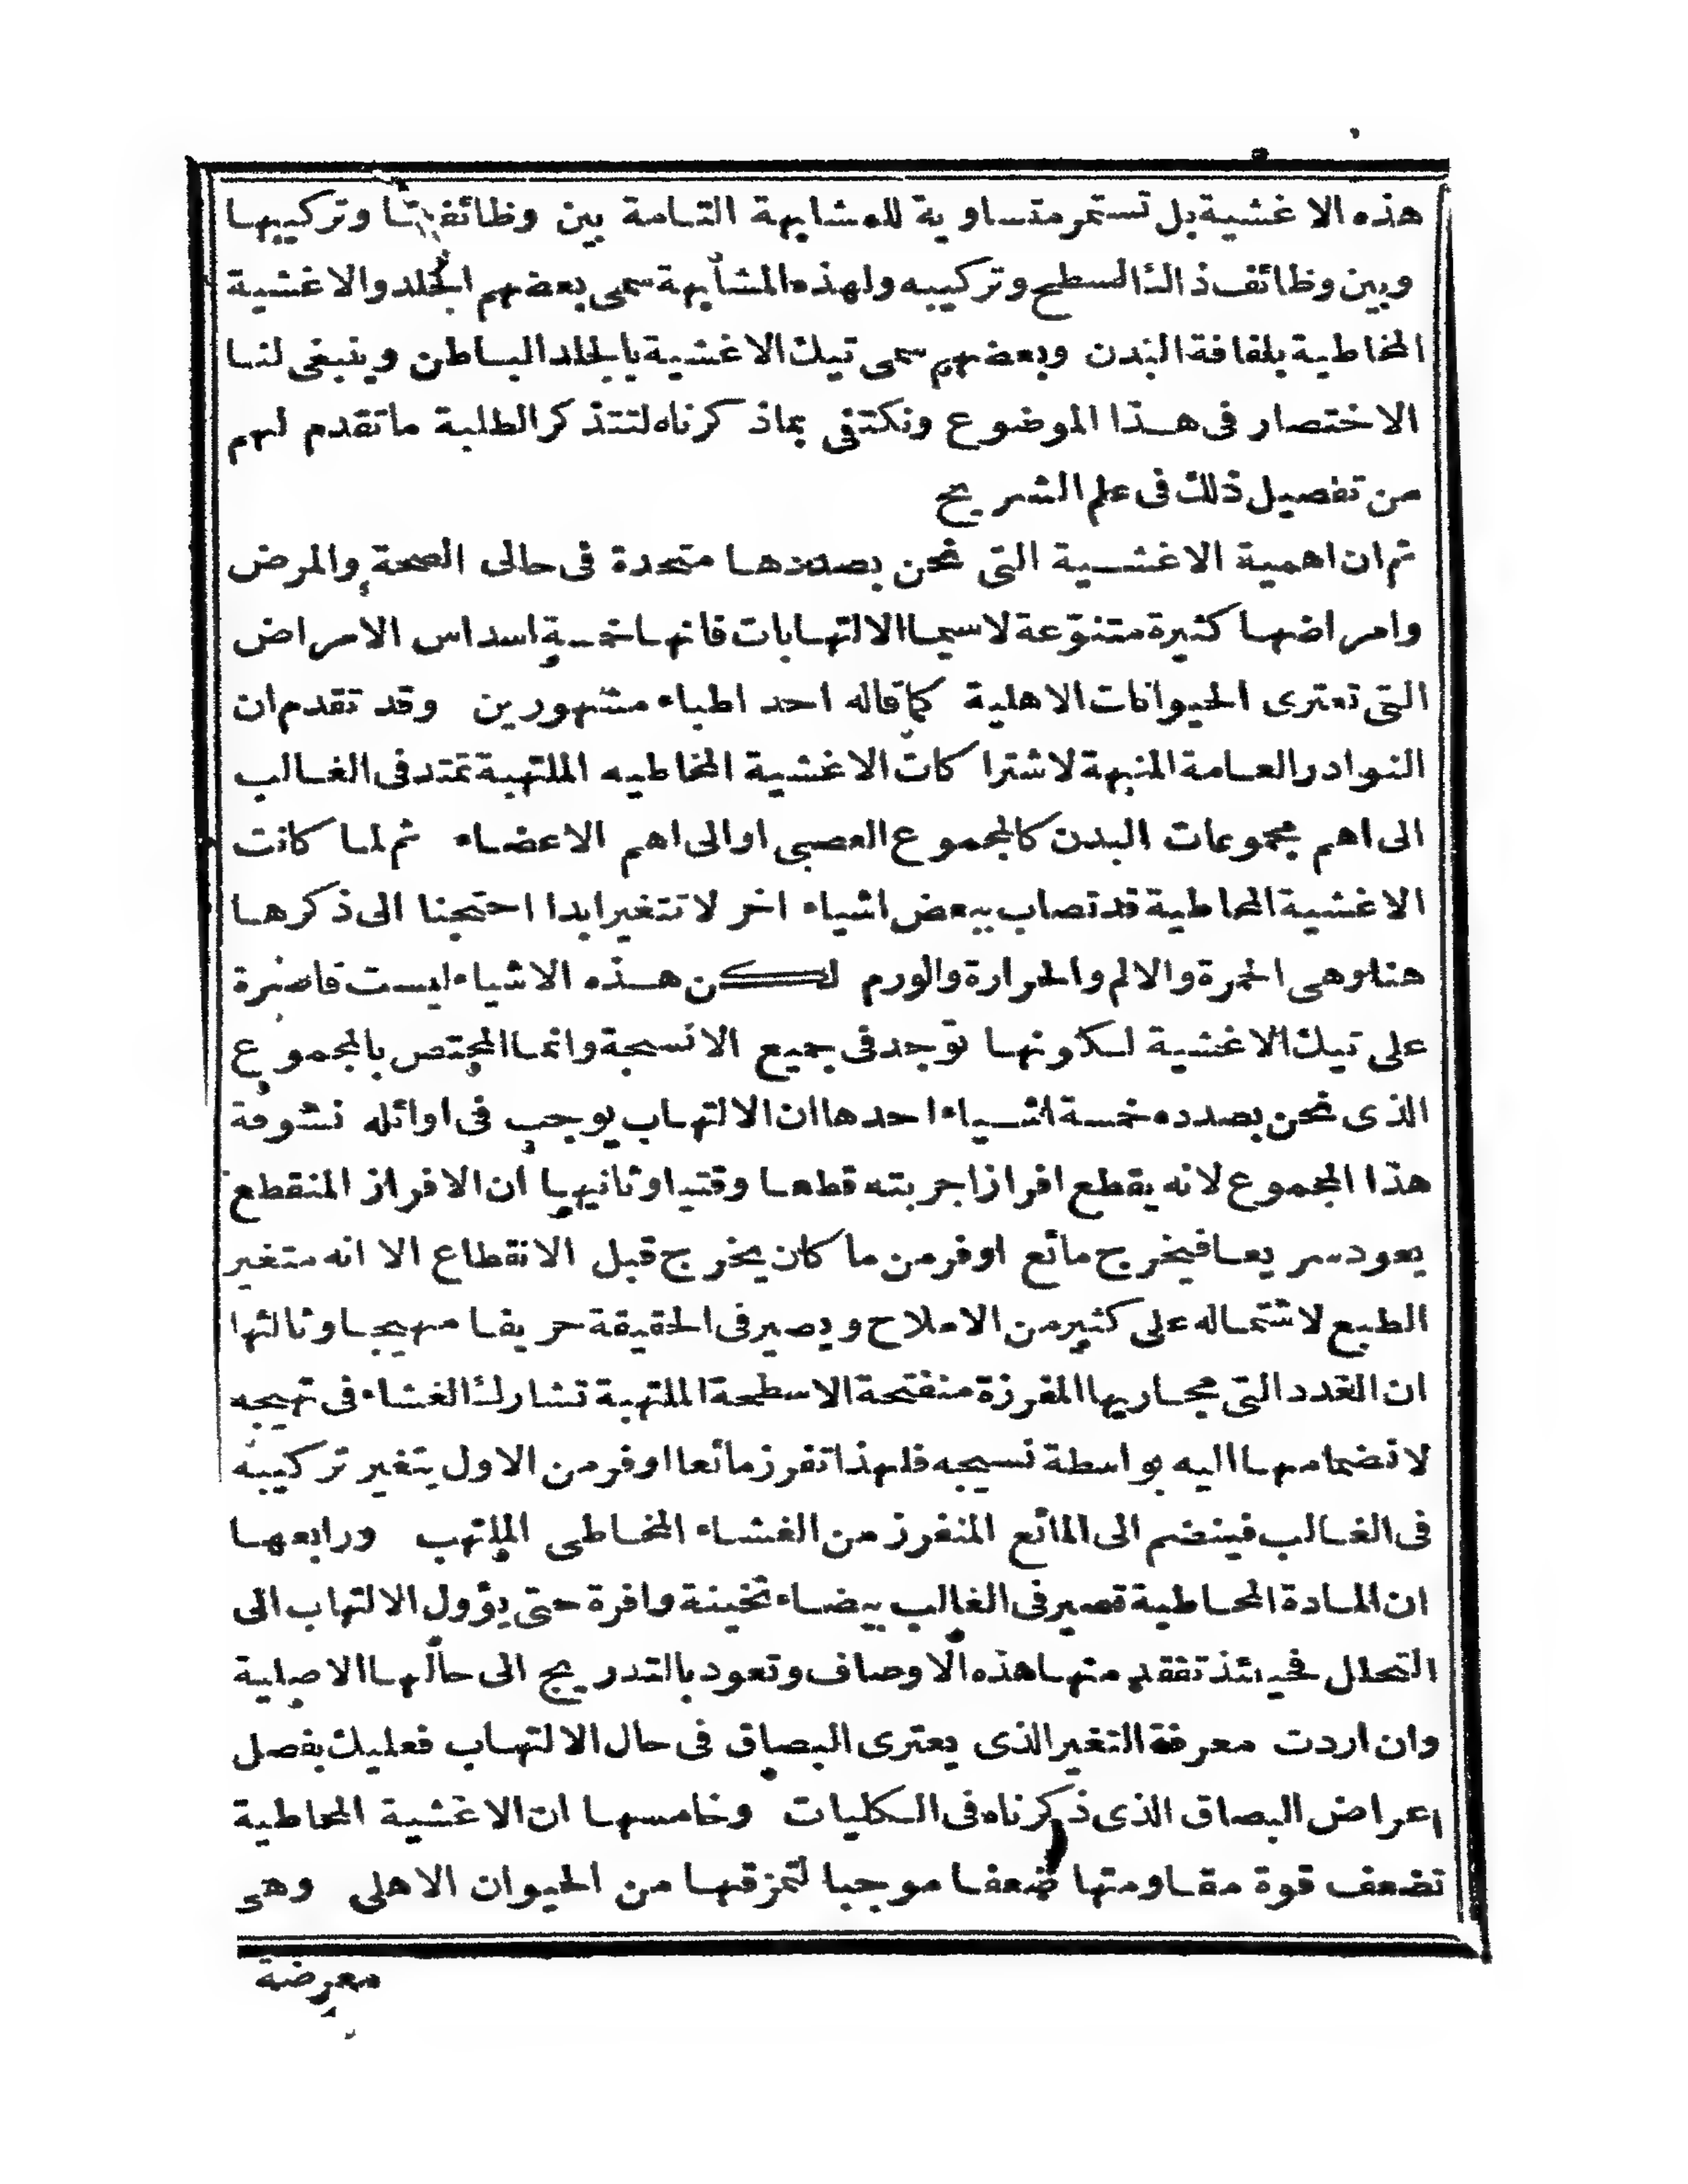 هذه الاغشية بل تستمر متساوية للمشابهة التامة بين وظائفها وتركيبها
وبين وظائف ذالك السطح وتركيبه ولهذه المشابهة سمى بعضهم الجلد والاغشية
المخاطية بلفافة البدن وبعضهم سمى تيك الاغشية بالجلد الباطن وينبغى لنا
الاختصار فى هذا الموضوع ونكتفى بماذكرناه لتتذكر الطلبة ماتقدم لهم
من تفصيل ذلك فى علم التشريح
ثم ان اهمية الاغشية التى نحن بصددها متحدة فى حالى الصحة والمرض
وامراضها كثيرة متنوّعة لاسيما الالتهابات فانها خمسة اسداس الامراض
التى تعترى الحيوانات الاهلية كما قاله احد اطباء مشهورين وقد تقدم ان
النوادر العامة المنبهة لاشتراكات الاغشية المخاطيه الملتهبة تمتد فى الغالب
الى اهم مجموعات البدن كالمجموع العصبى او الى اهم الاعضاء ثم لما كانت
الاغشية المخاطية قد تصاب ببعض اشياء اخر لا تتغير ابدا احتجنا الى ذكرها
هنا وهى الحمرة والالم والحرارة والورم لكن هذه الاشياء ليست قاصرة
على تيك الاغشية لكونها توجد فى جميع الانسجة وانما المختص بالمجموع
الذى نحن بصدده خمسة اشياء احدها ان الالتهاب يوجب فى اوائله نشوفة
هذا المجموع لانه يقطع افراز اجربته قطعا وقتيا وثانيها ان الافراز المنقطع
يعود سريعا فيخرج مائع اوفر من ما كان يخرج قبل الانقطاع الا انه متغير
الطبع لاشتماله على كثير من الاملاح ويصير فى الحقيقة حريفا مهيجا وثالثها
ان الغدد التى مجاريها المفرزة منفتحة الاسطحة الملتهبة تشارك الغشاء فى تهيجه
لانضمامها اليه بواسطة نسيجه فلهذا تفرز مائعا اوفر من الاول يتغير تركيبه
فى الغالب فينضم الى المائع المنفرز من الغشاء المخاطى الملتهب ورابعها
ان المادة المخاطية تصير فى الغالب بيضاء ثخينة وافرة حتى يؤول الالتهاب الى
التحلل فحينئذ تفقد منها هذه الاوصاف وتعود بالتدريج الى حالها الاصلية
وان اردت معرفة التغير الذى يعترى البصاق فى حال الالتهاب فعليك بفصل
اعراض البصاق الذى ذكرناه فى الكليات وخامسها ان الاغشية المخاطية
تضعف قوة مقاومتها ضعفا موجبا لتمزقها من الحيوان الاهلى وهى
معرضة